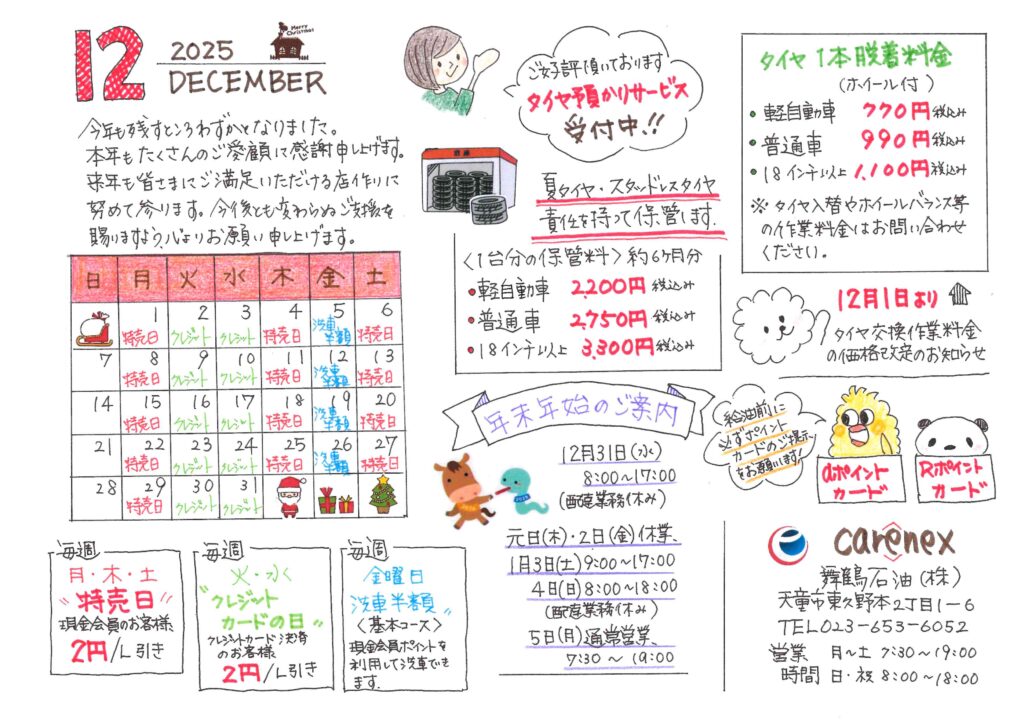 12
2025
DECEMBER
Merry
Christmas
今年も残すところわずかとなりました。
本年もたくさんのご愛顧に感謝申し上げます。
来年も皆さまにご満足いただける店作りに
努めて参ります。今後とも変わらぬご支援を
賜りますよう心よりお願い申し上げます。
日 月 火 水 木 金 土
1 2 3 4 5 6
特売日 クレジット クレジット 特売日 洗車半額 特売日
7 8 9 10 11 12 13
特売日 クレジット クレジット 特売日 洗車半額 特売日
14 15 16 17 18 19 20
特売日 クレジット クレジット 特売日 洗車半額 特売日
21 22 23 24 25 26 27
特売日 クレジット クレジット 特売日 洗車半額 特売日
28 29 30 31
特売日 クレジット クレジット
毎週
月・木・土
"特売日"
現金会員のお客様、
2円/L引き
毎週
火・水
"クレジット
カードの日"
クレジットカード決済
のお客様
2円/L引き
毎週
金曜日
"洗車半額"
〈基本コース〉
現金会員ポイントを
利用して洗車でき
ます.
ご好評頂いております
タイヤ預かりサービス
受付中!!
夏タイヤ・スタッドレスタイヤ
責任を持って保管します.
〈1台分の保管料〉約6ヶ月分
・軽自動車 2,200円税込み
・普通車 2,750円税込み
・18インチ以上 3,300円税込み
年末年始のご案内
12月31日(水)
8:00~17:00
(配達業務休み)
元日(木)・2日(金)休業、
1月3日(土)9:00~17:00
4日(日)8:00~18:00
(配達業務休み)
5日(月)通常営業、
7:30~19:00
タイヤ1本脱着料金
(ホイール付)
・軽自動車 770円税込み
・普通車 990円税込み
・18インチ以上 1,100円税込み
※タイヤ入替やホイールバランス等
の作業料金はお問い合わせ
ください。
12月1日より
タイヤ交換作業料金
の価格改定のお知らせ
給油前に
必ずポイント
カードのご提示
をお願います!
dポイント
カード
Rポイント
カード
carenex
舞鶴石油(株)
天童市東久野本2丁目1-6
TEL023-653-6052
営業 月~土 7:30~19:00
時間 日・祝 8:00~18:00